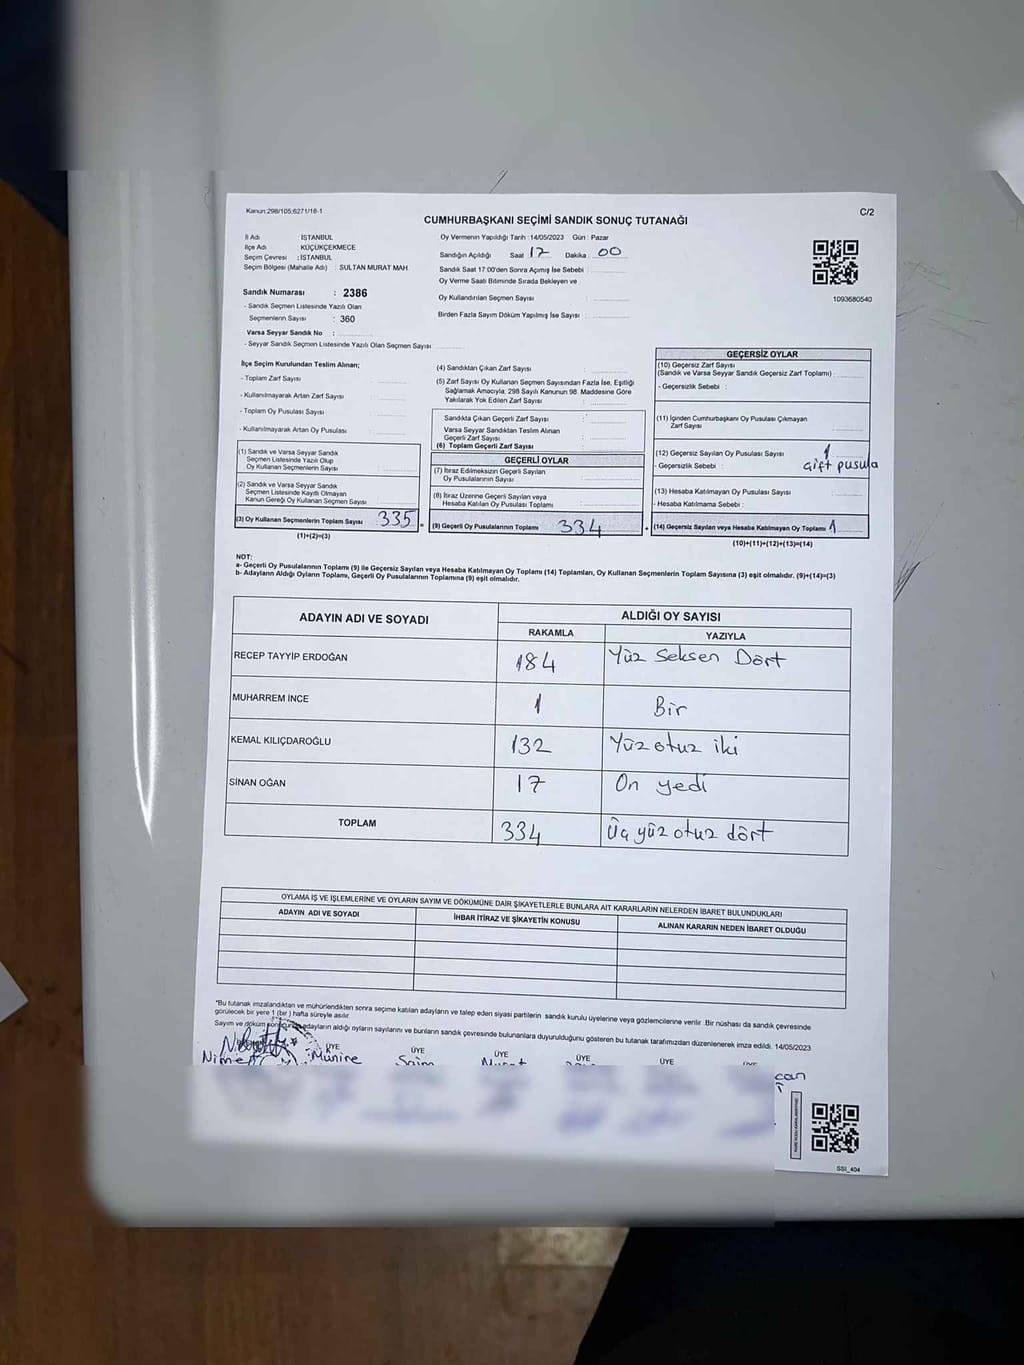 Kanun:298/105;6271/18-1
C/2
CUMHURBAŞKANI SEÇİMİ SANDIK SONUÇ TUTANAĞI
İl Adı : İSTANBUL
İlçe Adı : KÜÇÜKÇEKMECE
Seçim Çevresi : İSTANBUL
Seçim Bölgesi (Mahalle Adı) : SULTAN MURAT MAH.
Sandık Numarası : 2386
- Sandık Seçmen Listesinde Yazılı Olan
Seçmenlerin Sayısı : 360
Varsa Seyyar Sandık No :
- Seyyar Sandık Seçmen Listesinde Yazılı Olan Seçmen Sayısı
Oy Vermenin Yapıldığı Tarih :14/05/2023 Gün : Pazar
Sandığın Açıldığı Saat 17 Dakika : 00
Sandık Saat 17:00'den Sonra Açılmış İse Sebebi :
Oy Verme Saati Bitiminde Sırada Bekleyen ve
Oy Kullandırılan Seçmen Sayısı :
Birden Fazla Sayım Döküm Yapılmış İse Sayısı :
1093680540
İlçe Seçim Kurulundan Teslim Alınan;
- Toplam Zarf Sayısı :
- Kullanılmayarak Artan Zarf Sayısı :
- Toplam Oy Pusulası Sayısı :
- Kullanılmayarak Artan Oy Pusulası :
(1) Sandık ve Varsa Seyyar Sandık
Seçmen Listesinde Yazılı Olup
Oy Kullanan Seçmenlerin Sayısı :
(2) Sandık ve Varsa Seyyar Sandık
Seçmen Listesinde Kayıtlı Olmayan
Kanun Gereği Oy Kullanan Seçmen Sayısı :
(3) Oy Kullanan Seçmenlerin Toplam Sayısı 335 =
(1)+(2)=(3)
(4) Sandıktan Çıkan Zarf Sayısı :
(5) Zarf Sayısı Oy Kullanan Seçmen Sayısından Fazla İse, Eşitliği
Sağlamak Amacıyla; 298 Sayılı Kanunun 98. Maddesine Göre
Yakılarak Yok Edilen Zarf Sayısı :
Sandıkta Çıkan Geçerli Zarf Sayısı :
Varsa Seyyar Sandıktan Teslim Alınan
Geçerli Zarf Sayısı :
(6) Toplam Geçerli Zarf Sayısı
GEÇERLİ OYLAR
(7) İtiraz Edilmeksizin Geçerli Sayılan
Oy Pusulalarının Sayısı :
(8) İtiraz Üzerine Geçerli Sayılan veya
Hesaba Katılan Oy Pusulası Toplamı :
(9) Geçerli Oy Pusulalarının Toplamı 334 +
GEÇERSİZ OYLAR
(10) Geçersiz Zarf Sayısı
(Sandık ve Varsa Seyyar Sandık Geçersiz Zarf Toplamı) :
- Geçersizlik Sebebi :
(11) İçinden Cumhurbaşkanı Oy Pusulası Çıkmayan
Zarf Sayısı :
(12) Geçersiz Sayılan Oy Pusulası Sayısı : 1
- Geçersizlik Sebebi : Çift pusula
(13) Hesaba Katılmayan Oy Pusulası Sayısı :
- Hesaba Katılmama Sebebi :
(14) Geçersiz Sayılan veya Hesaba Katılmayan Oy Toplamı 1
(10)+(11)+(12)+(13)=(14)
NOT:
a- Geçerli Oy Pusulalarının Toplamı (9) ile Geçersiz Sayılan veya Hesaba Katılmayan Oy Toplamı (14) Toplamları, Oy Kullanan Seçmenlerin Toplam Sayısına (3) eşit olmalıdır. (9)+(14)=(3)
b- Adayların Aldığı Oyların Toplamı, Geçerli Oy Pusulalarının Toplamına (9) eşit olmalıdır.
ADAYIN ADI VE SOYADI ALDIĞI OY SAYISI
RAKAMLA YAZIYLA
RECEP TAYYİP ERDOĞAN 184 Yüz Seksen Dört
MUHARREM İNCE 1 Bir
KEMAL KILIÇDAROĞLU 132 Yüz otuz iki
SİNAN OĞAN 17 On yedi
TOPLAM 334 Üç yüz otuz dört
OYLAMA İŞ VE İŞLEMLERİNE VE OYLARIN SAYIM VE DÖKÜMÜNE DAİR ŞİKAYETLERLE BUNLARA AİT KARARLARIN NELERDEN İBARET BULUNDUKLARI
ADAYIN ADI VE SOYADI İHBAR İTİRAZ VE ŞİKAYETİN KONUSU ALINAN KARARIN NEDEN İBARET OLDUĞU
*Bu tutanak imzalandıktan ve mühürlendikten sonra seçime katılan adayların ve talep eden siyasi partilerin sandık kurulu üyelerine veya gözlemcilerine verilir. Bir nüshası da sandık çevresinde
görülecek bir yere 1 (bir ) hafta süreyle asılır.
Sayım ve döküm sonucunda adayların aldığı oyların sayılarını ve bunların sandık çevresinde bulunanlara duyurulduğunu gösteren bu tutanak tarafımızdan düzenlenerek imza edildi. 14/05/2023
ÜYE ÜYE ÜYE ÜYE ÜYE ÜYE
Nimet Münine Saim Murat
can
SSI_404